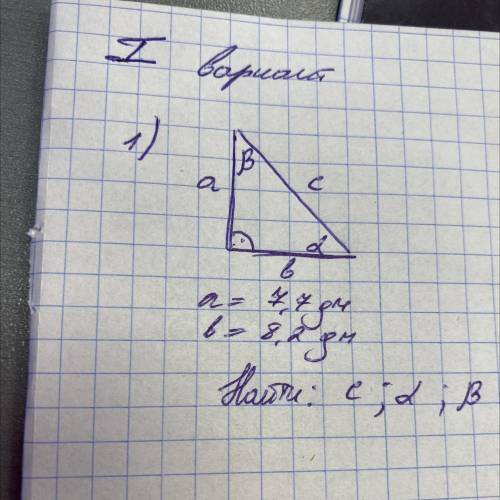 I вариант
1)
β
a
c
α
b
a = 7,7 дм
b = 8,2 дм
Найти: c ; α ; β